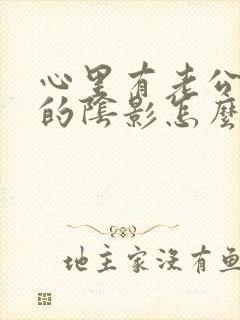 心里有老公
的陰影怎麼
地主家沒有鱼